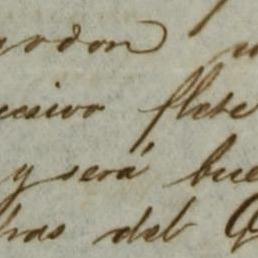 godon
cesivo flete
y será bue
hras del